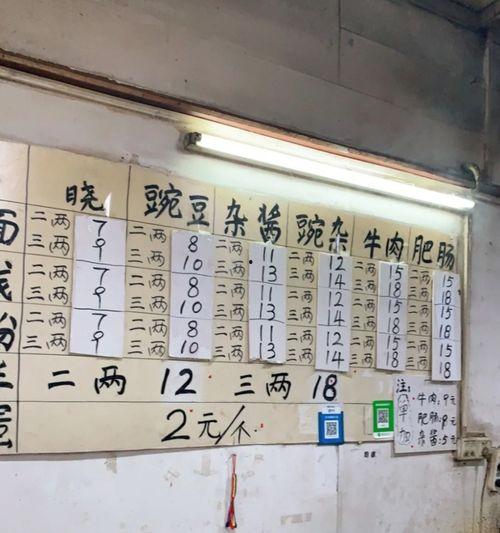 晓 豌豆 杂酱 豌杂 牛肉 肥肠
面 二两 7 二两 8 二两 11 二两 12 二两 15 二两 15
三两 9 三两 10 三两 13 三两 14 三两 18 三两 18
二两 7 二两 8 二两 11 二两 12 二两 15 二两 15
三两 9 三两 10 三两 13 三两 14 三两 18 三两 18
粉 二两 7 二两 8 二两 11 二两 12 二两 15 二两 15
三两 9 三两 10 三两 13 三两 14 三两 18 三两 18
二两 12 三两 18
蛋 2元/个
注:
单加
牛肉:9元
肥肠:9元
杂酱:5元